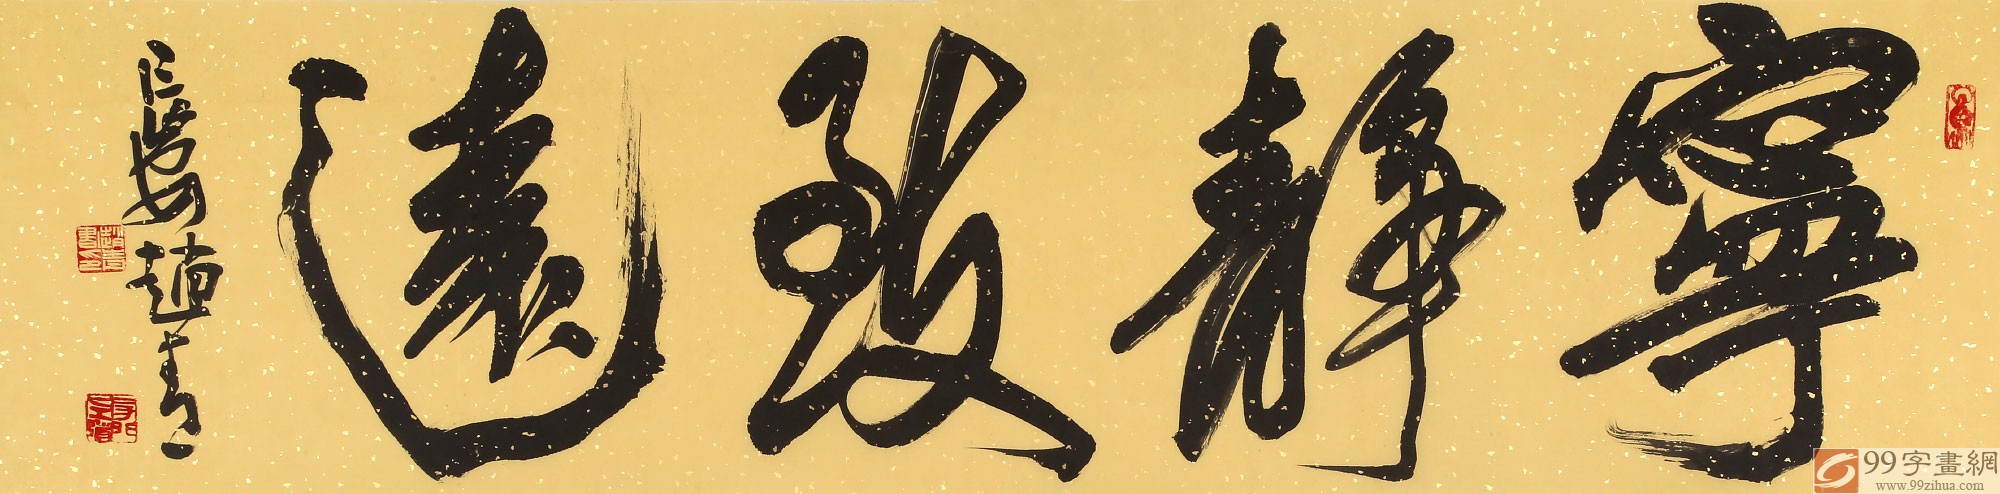 寧靜致遠
趙青
99字畫網
www.99zihua.com